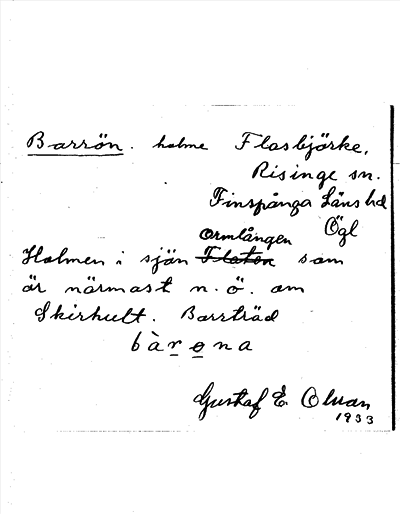 Barrön. holme Flasbjörke,
Risinge sn.
Finspånga Läns hd
Ögl
Ormlången
Holmen i sjön Flaten som
är närmast n. ö. om
Skirhult. Barrträd
bàrona
Gustaf E. Olson
1933